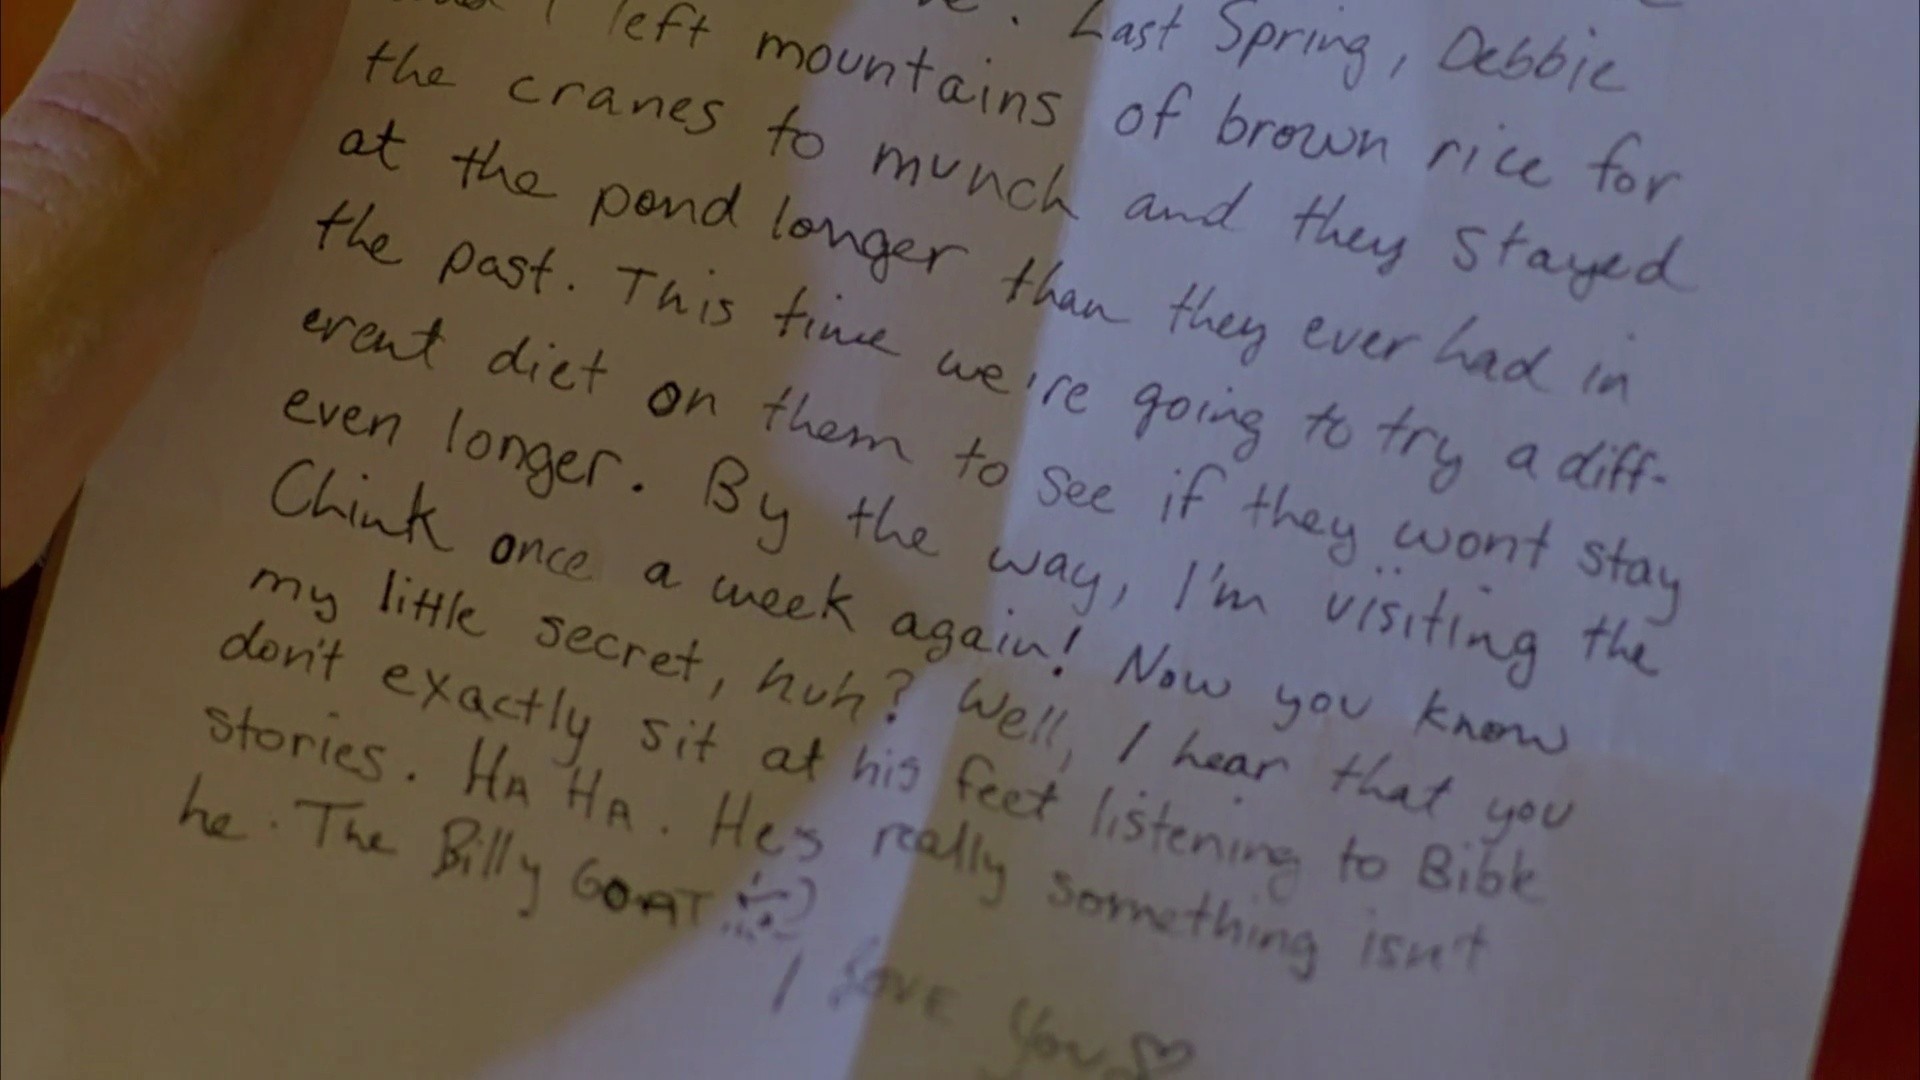 I left mountains of brown rice for
Last Spring, Debbie
the cranes to munch and they stayed
at the pond longer than they ever had in
the past. This time we're going to try a diff-
erent diet on them to see if they wont stay
even longer. By the way, I'm visiting the
Chink once a week again! Now you know
my little secret, huh? Well, I hear that you
don't exactly sit at his feet listening to Bible
stories. HA HA. He's really something isn't
he. The Billy GOAT
I LOVE YOU